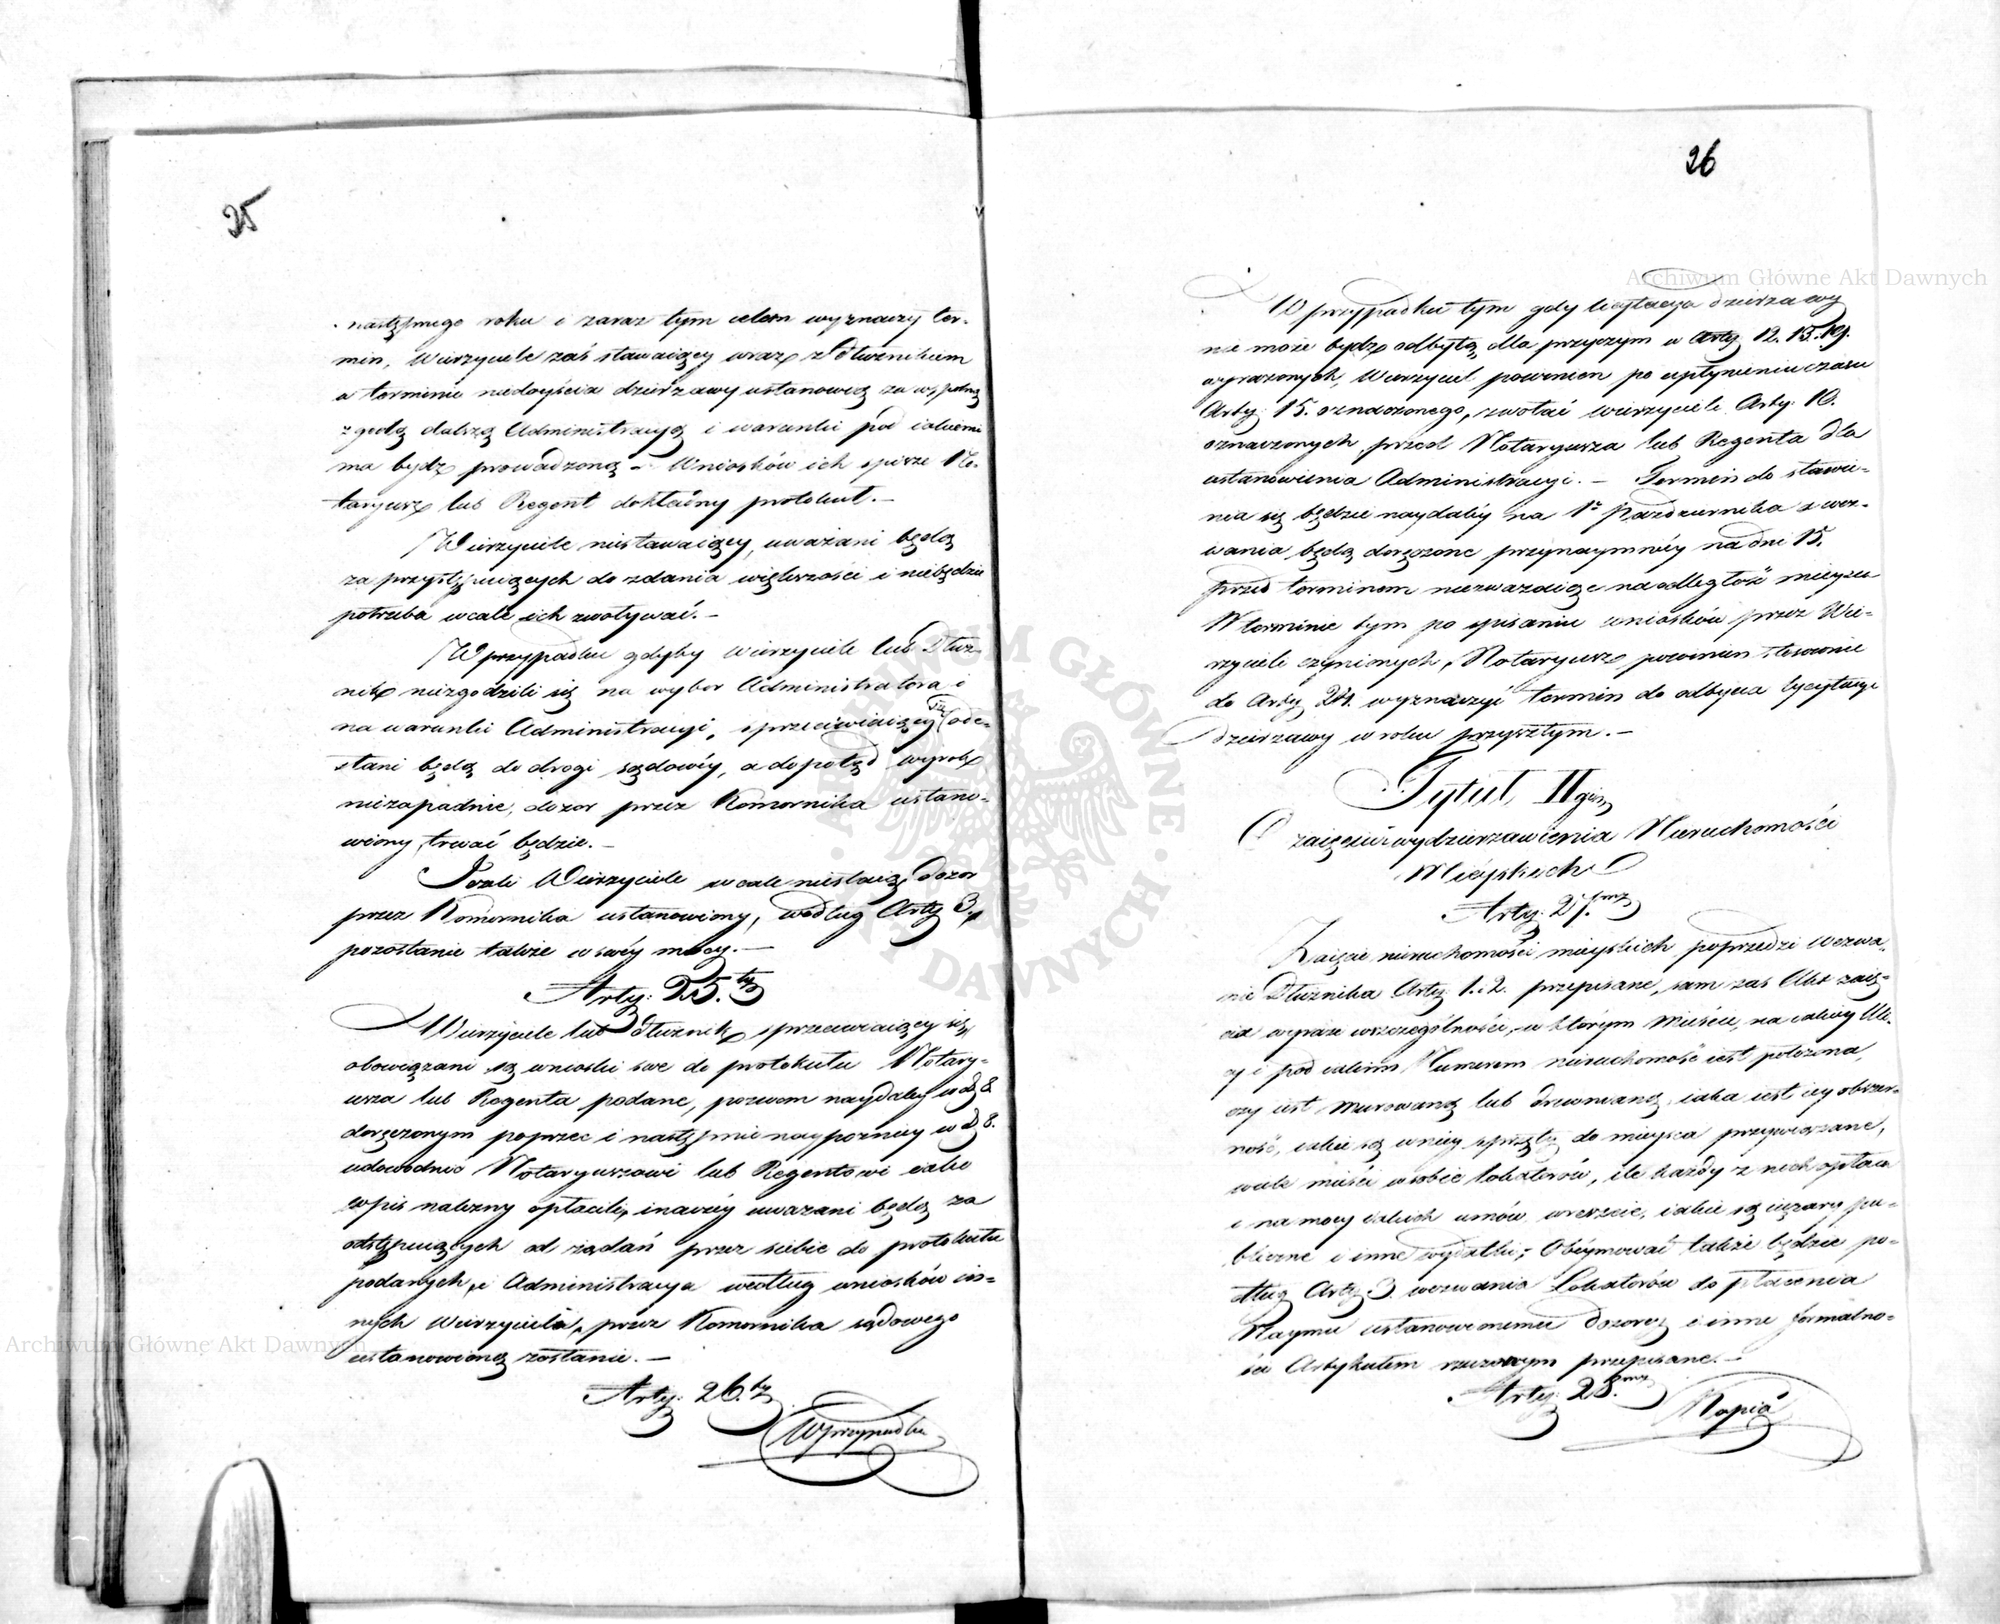 25
następnego roku i zaraz tym celem wyznaczy ter-
min, Wierzyciele zaś stawaiący wraz z Dłużnikiem
w terminie niedoyścia dzierżawy ustanowią za wspólną
zgodą dalszą Administracyą i warunki pod iakiemi
ma bydź prowadzoną – Wniosków ich spisze No-
taryusz lub Regent dokładny protokuł. –
Wierzyciele niestawaiący, uważani będą
za przystępuiących do zdania większości i niebędzie
potrzeba wcale ich zwoływać. –
W przypadku gdyby Wierzyciele lub Dłuż-
nik niezgodzili się na wybor Administratora i
na warunki Administracyi, sprzeciwiaiący się ode-
słani będą do drogi sądowéy, a dopokąd wyrok
niezapadnie, dozor przez Komornika ustano-
wiony trwać będzie. –
Jeżeli Wierzyciele wcale niestaią, dozor
przez Komornika ustanowiony, według Arty 3,
pozostanie także w swéy mocy. –
Arty: 25.ty
Wierzyciele lub Dłużnik sprzeciwiaiący się,
obowiązani są wnioski swe do protokułu Notary-
usza lub Regenta podane, pozwem naydaléy w d 8
doręczonym poprzeć i następnie naypoźniéy w d 8.
udowodnić Notaryuszowi lub Regentowi iako
wpis należny opłacili, inaczéy uważani będą za
odstępuiących od żądań przez siebie do protokułu
podanych, i Administracya według wniosków in-
nych Wierzycieli, przez Komornika sądowego
ustanowioną zostanie. –
Arty: 26.ty
W przypadku
26
W przypadku tym gdy licytacya dzierżawy
nie może bydź odbytą, dla przyczyn w Arty 12. 13. 19.
wyrażonych, Wierzyciel powinien po upłynieniu czasu
Arty: 15. oznaczonego, zwołać wierzycieli Arty: 10.
oznaczonych, przed Notaryusza lub Regenta dla
ustanowienia Administracyi. – Termin do stawie-
nia się będzie naydaléy na 1º Października a wez-
wania będą doręczone przynaymniéy na dni 15.
przed terminem niezważaiąc na odległość mieysca
W terminie tym po spisaniu wniosków przez Wie-
rzycieli czynionych, Notaryusz powinien stosownie
do Arty 24. wyznaczyć termin do odbycia licytacyi
dzierżawy w roku przyszłym. –
Tytuł IIgi
O zaięciu i wydzierżawieniu Nieruchomości
Mieyskich
Arty: 27.my
Zaięcie nieruchomości mieyskich poprzedzi wezwa-
nie Dłużnika Arty 1. i 2. przepisane, sam zaś Akt zaię-
cia wyrazi w szczególności, w którym Mieście, na iakiéy Uli-
cy i pod iakiem Numerem nieruchomość iest położona,
czy iest murowaną lub drewnianą, iaka iest iéy obszer-
ność, iakie są w niéy sprzęty do mieysca przywiązane,
wiele mieści w sobie lokatorów, ile każdy z nich opłaca
i na mocy iakich umów, wreszcie, iakie są ciężary pu-
bliczne i inne wydatki; Obéymować także będzie po-
dług Arty 3. wezwania Lokatorów do płacenia
Naymu ustanowionemu dozorcy i inne formalno-
ści Artykułem rzeczonym przepisane. –
Arty: 28.my
Kopia
Archiwum Główne Akt Dawnych
Archiwum Główne Akt Dawnych
ARCHIWUM GŁÓWNE AKT DAWNYCH